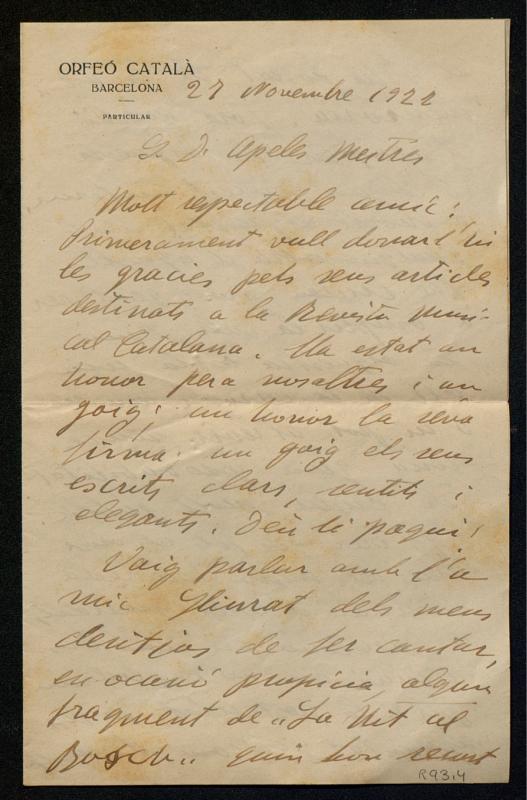 ORFEÓ CATALÀ
BARCELONA
PARTICULAR
27 Novembre 1922
Sr Dn Apeles Mestres
Molt respectable amic:
Primerament vull donarl'hi
les gracies pels seus articles
destinats a la Revista Musi-
cal Catalana. Ha estat un
honor pera nosaltres i un
goig; un honor la seva
firma: un goig els seus
escrits clars, sentits i
elegants. Deu li pagui!
Vaig parlar amb l'a
mic Lliurat dels meus
desitjos de fer cantar,
en ocasió propicia, algun
fragment de "La Nit al
Bosch" quin bon recort
R93,4